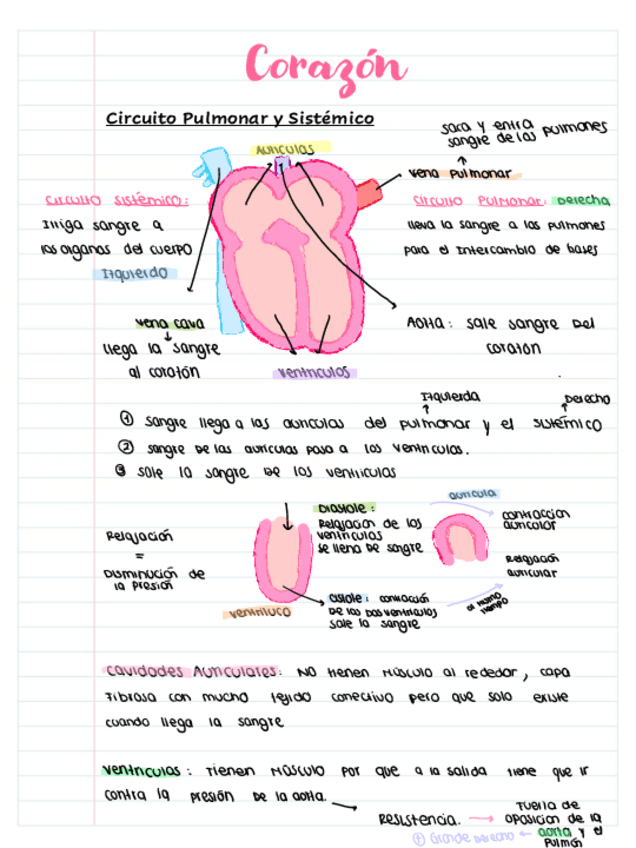 Corazón
Circuito Pulmonar y Sistémico
Aurículas
saca y entra
sangre de los pulmones
vena pulmonar
circuito sistémico:
Irriga sangre a
los organos del cuerpo
Izquierdo
circuito pulmonar: Derecha
lleva la sangre a los pulmones
para el intercambio de gases
vena cava
llega la sangre
al corazón
Aorta: sale sangre del
corazón
ventriculos
Izquierda
Derecho
① sangre llega a las auriculas del pulmonar y el sistémico
② sangre de las auriculas pasa a los ventriculos.
③ sale la sangre de los ventriculos
Relajación
=
Disminución de
la presión
Diastole:
Relajación de los
ventriculos
se llena de sangre
ventriluco
sistole: contracción
de los dos ventriculos
sale la sangre
auricula
contraccion
auricular
Relajación
auricular
al mismo
tiempo
cavidades Auriculares: No tienen músculo al rededor, capa
fibrosa con mucho tejido conectivo pero que solo existe
cuando llega la sangre
ventriculos: Tienen músculo por que a la salida tiene que ir
contra la presión de la aorta.
Resistencia.
Fuerza de
oposición de la
aorta y el
pulmón
⊕ Grande Derecho